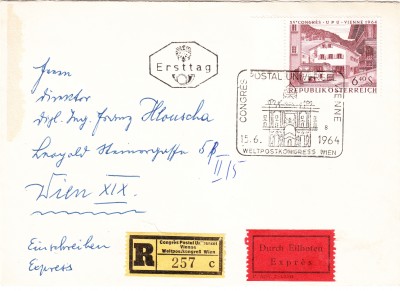 XVe CONGRÈS · U P U · VIENNE 1964
6.40 S
REPUBLIK ÖSTERREICH
Ersttag
CONGRÈS POSTAL UNIVERSEL VIENNE
15.6. 1964
WELTPOSTKONGRESS WIEN
Herrn
Direktor
Dipl. Ing. Franz Hlouscha
Leopold Steinergasse
II/5
Wien XIX.
Einschreiben
Express
R
Congrès Postal
Vienne
Weltpostkongreß Wien
257 c
Durch Eilboten
Exprès